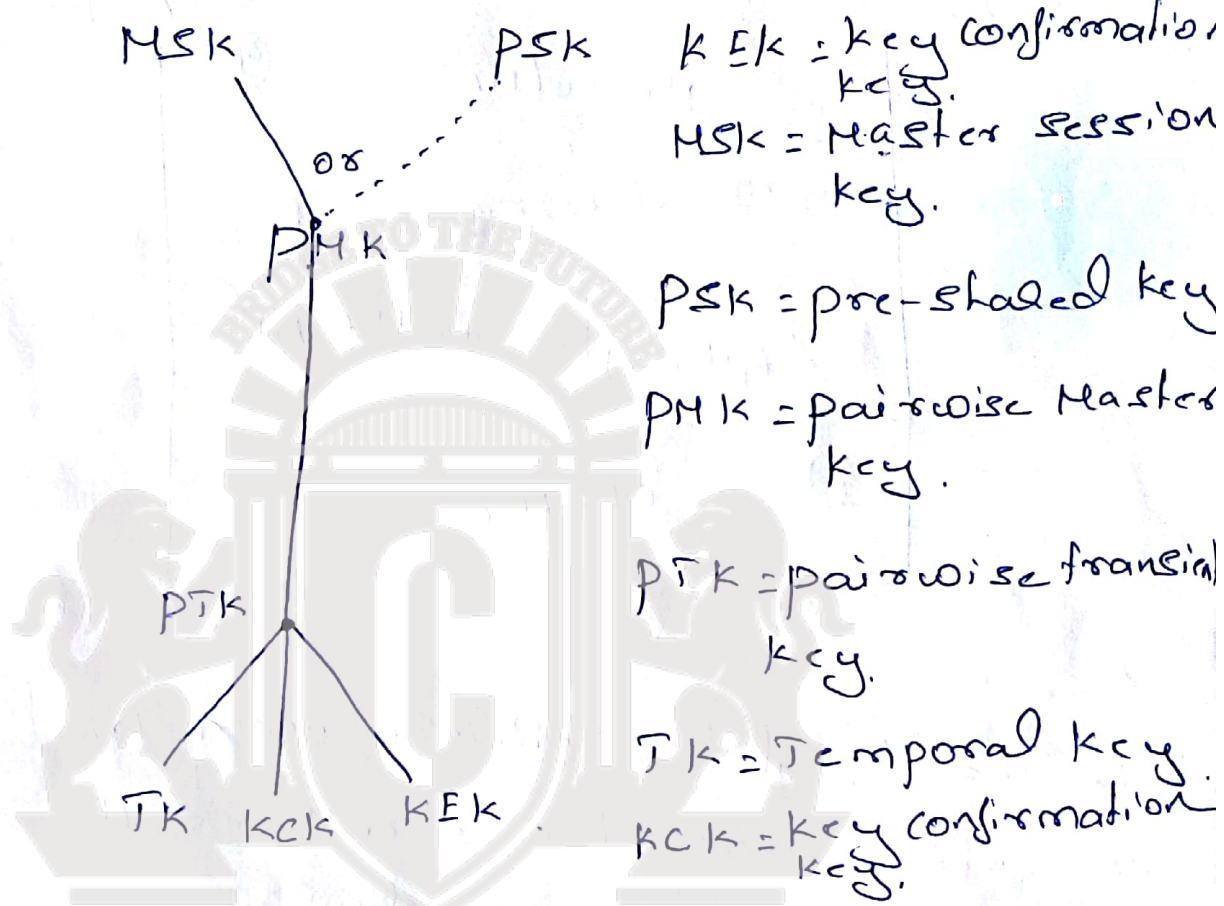 MSK
PSK
or
PMK
PTK
TK KCK KEK
KEK : key confirmation
key.
MSK = Master session
key.
PSK = pre-shared key
PMK = pairwise Master
key.
PTK = pairwise transient
key.
TK = Temporal key.
KCK = key confirmation
key.
BRIDGE TO THE FUTURE